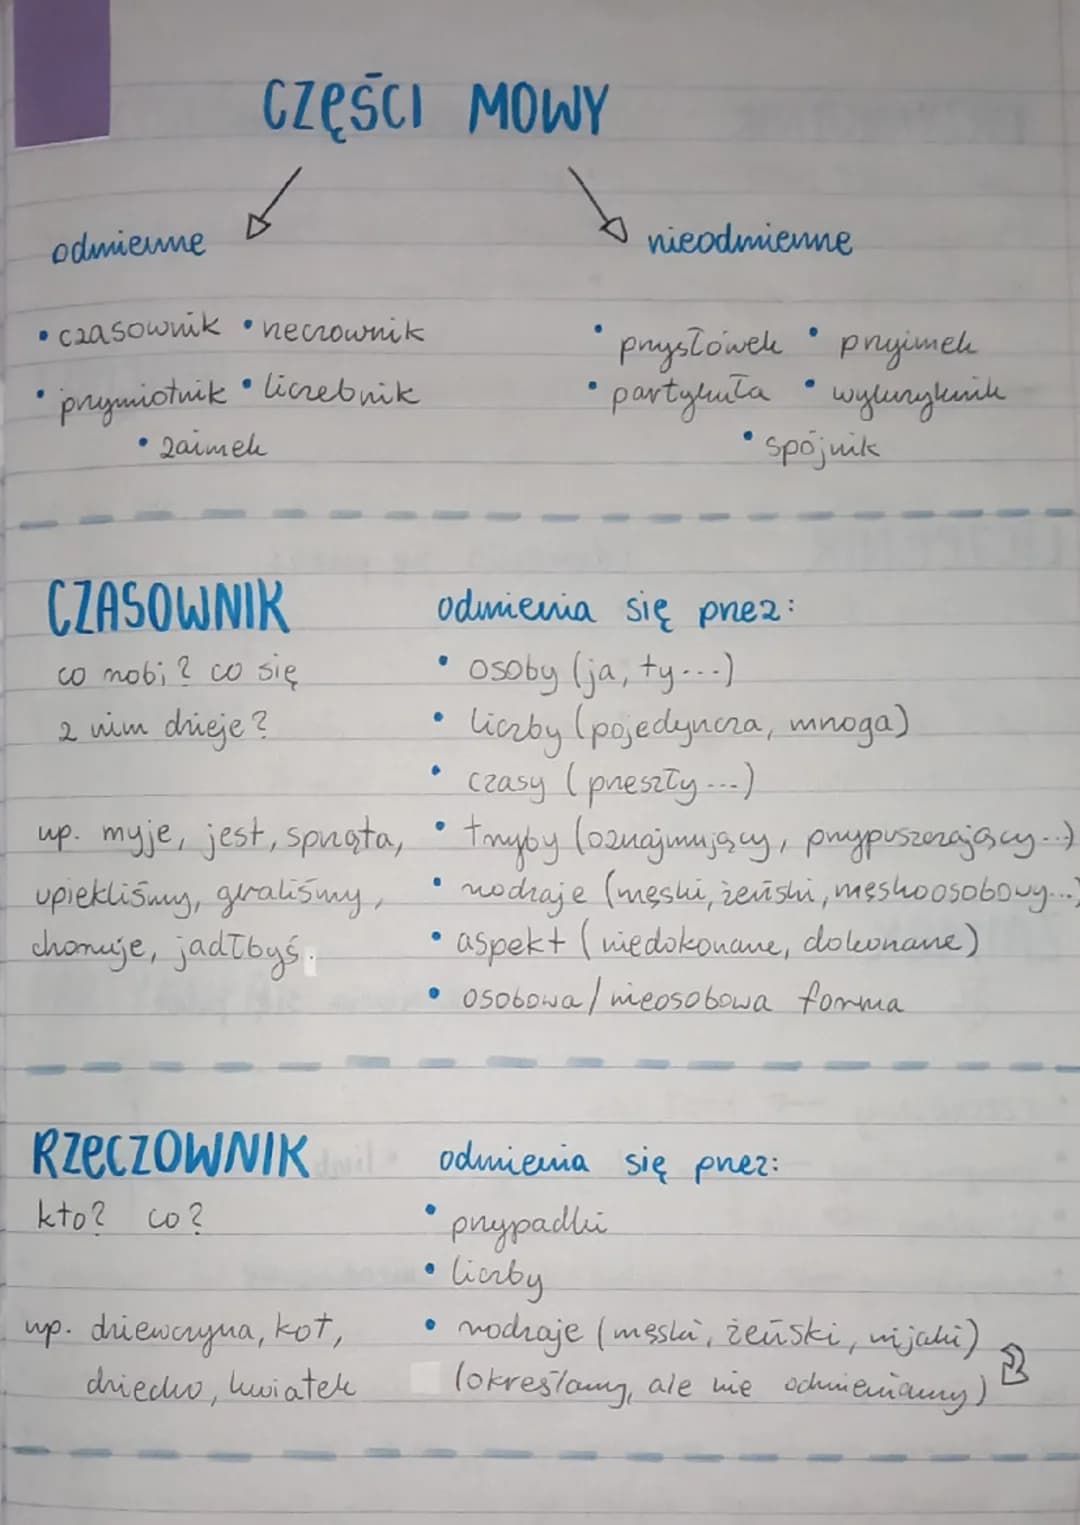 CZĘŚCI MOWY
odmienne
nieodmienne
• czasownik • rzeczownik
• przymiotnik • liczebnik
• zaimek
• przysłówek • przyimek
• partykuła • wykrzyknik
• spójnik
CZASOWNIK
co robi? co się
z nim dzieje?
np. myje, jest, sprząta,
upiekliśmy, graliśmy,
choruje, jadłbyś.
odmienia się przez:
• osoby (ja, ty...)
• liczby (pojedyncza, mnoga)
• czasy (przeszły...)
• tryby (oznajmujący, przypuszczający...)
• rodzaje (męski, żeński, męskoosobowy...)
• aspekt (niedokonane, dokonane)
• osobowa/nieosobowa forma
RZECZOWNIK
kto? co?
np. dziewczyna, kot,
dziecko, kwiatek
odmienia się przez:
• przypadki
• liczby
• rodzaje (męski, żeński, nijaki)
(określamy, ale nie odmieniamy)